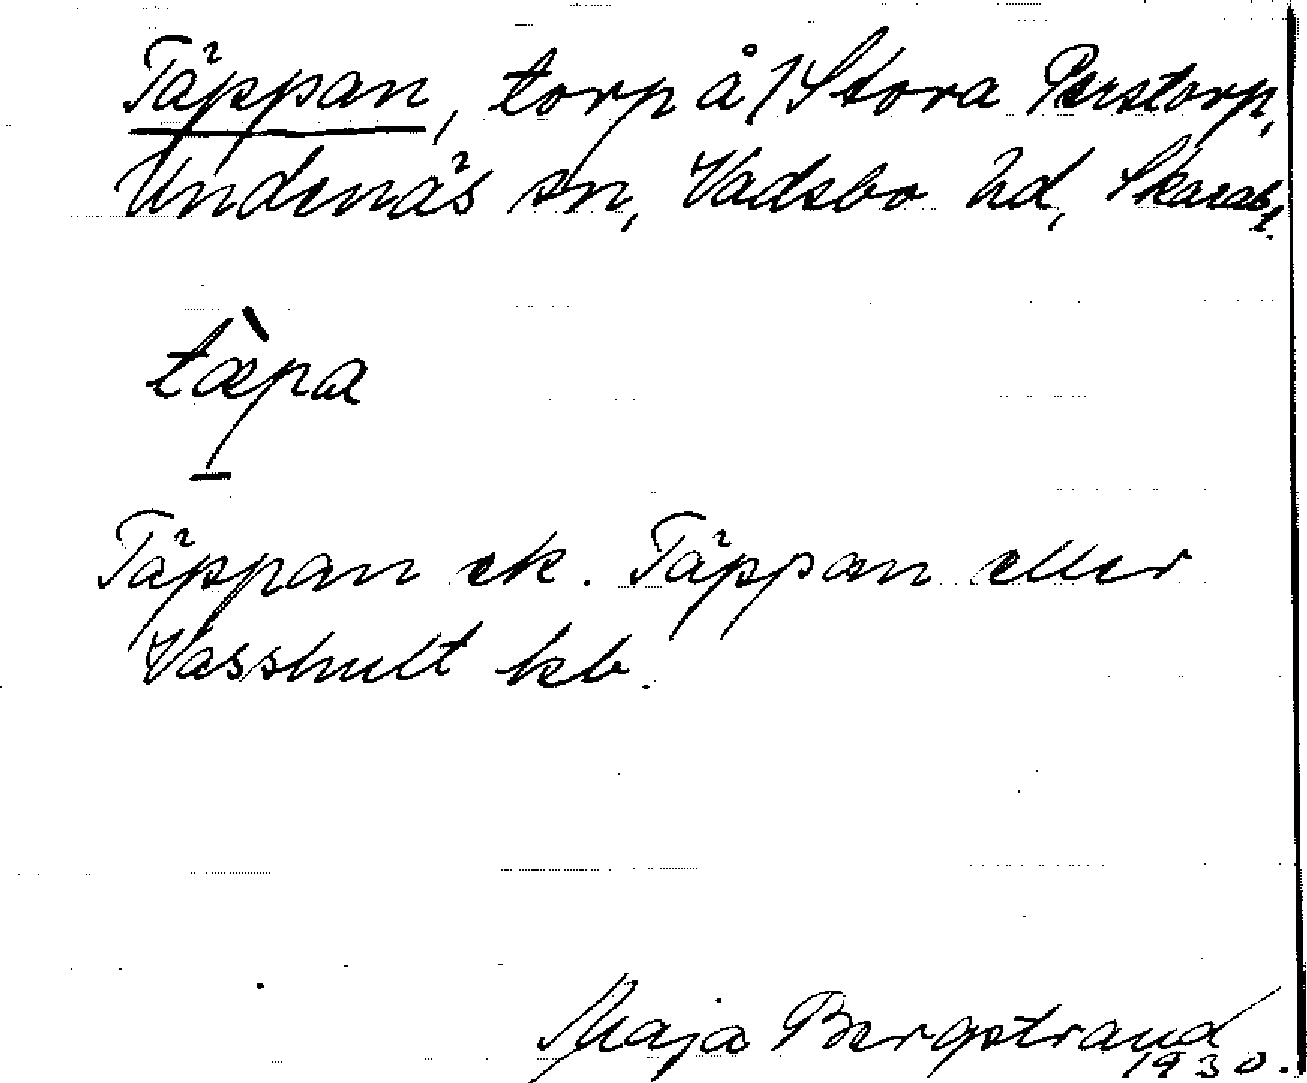 Täppan, torp å / Stora Perstorp,
Undenäs sn, Vadsbo hd, Skarab. l.
tæ̀pa
Täppan ek. Täppan eller
Vasshult kb.
Maja Bergstrand
1930.